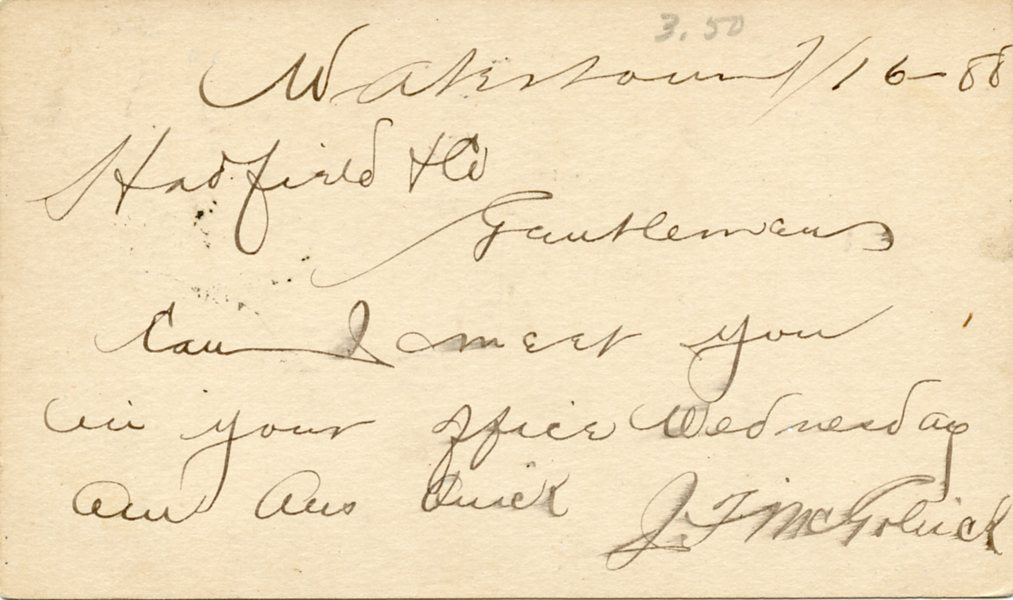 3.50
Watertown 7/16-88
Hadfield & Co
Gentlemans
Can I meet you
in your office Wednesday
am Ans Quick J. F. McGolrick